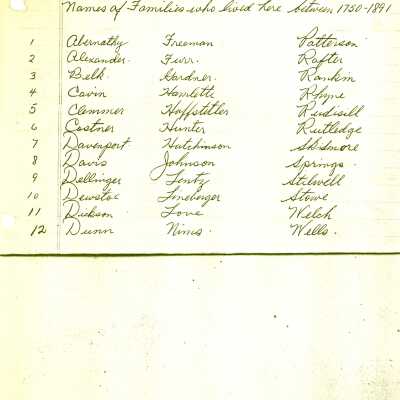 Names of Families who lived here between 1750-1891
1 Abernathy Freeman Patterson
2 Alexander. Furr. Rafter
3 Belk. Gardner. Rankin
4 Cavin Hamlette Rhyne
5 Clemmer Hoffstetler Rudisill
6 Costner Hunter Rutledge
7 Davenport Hutchinson Skidmore
8 Davis Johnson Springs.
9 Dellinger Lentz Stilwell
10 Lineberger Stowe
11 Dickson Love Welch
12 Dunn Nims. Wells.